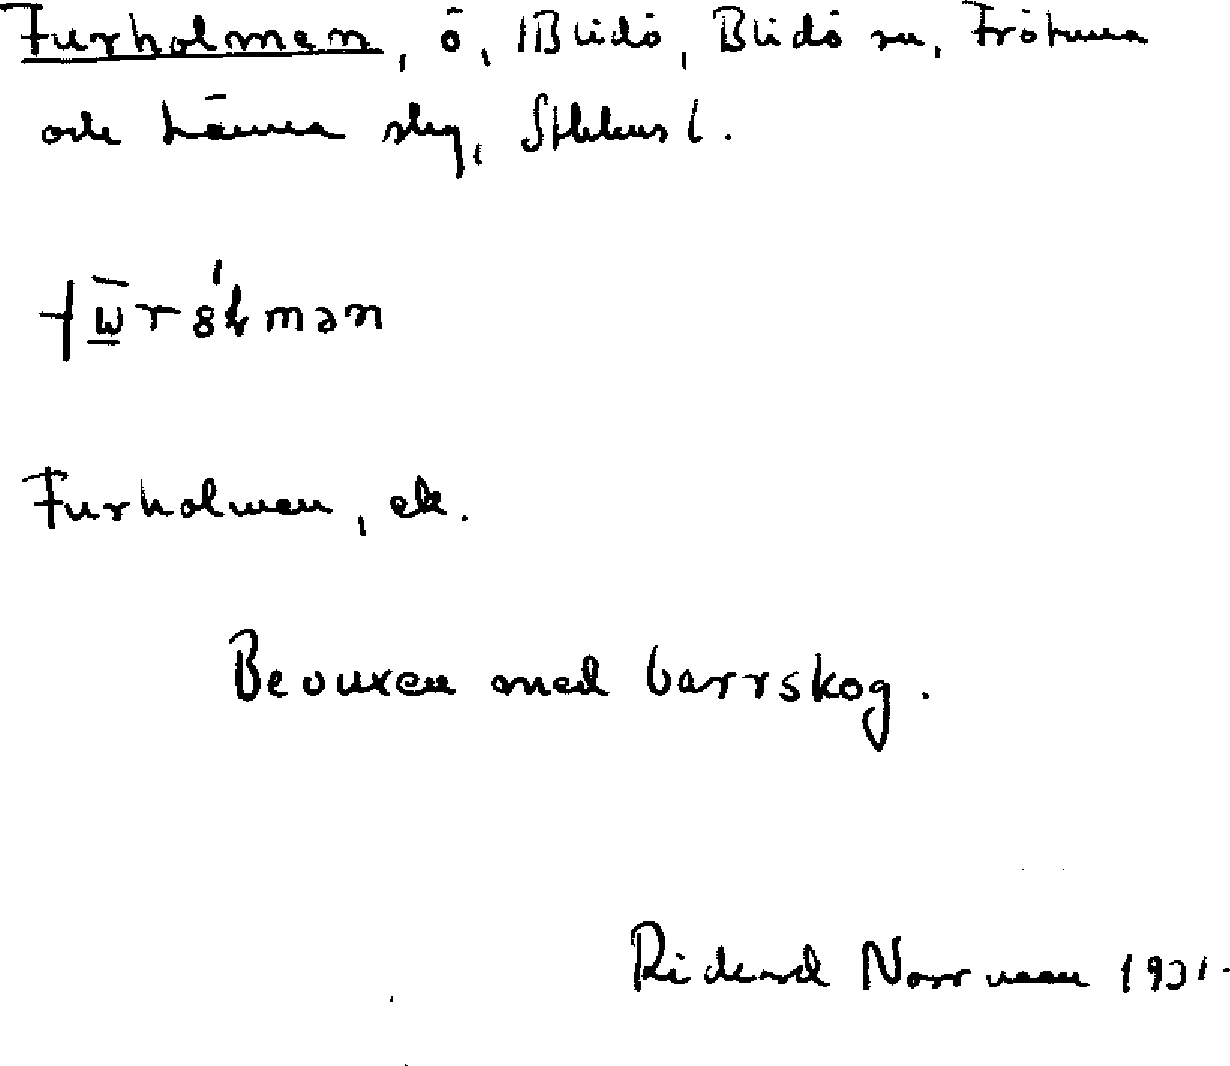 Furholmen, ö, Blidö, Blidö sn, Frötuna
och Länna skg, Sthlms l.
Furholmen, ek.
Bevuxen med barrskog.
Rickard Norrman 1931.